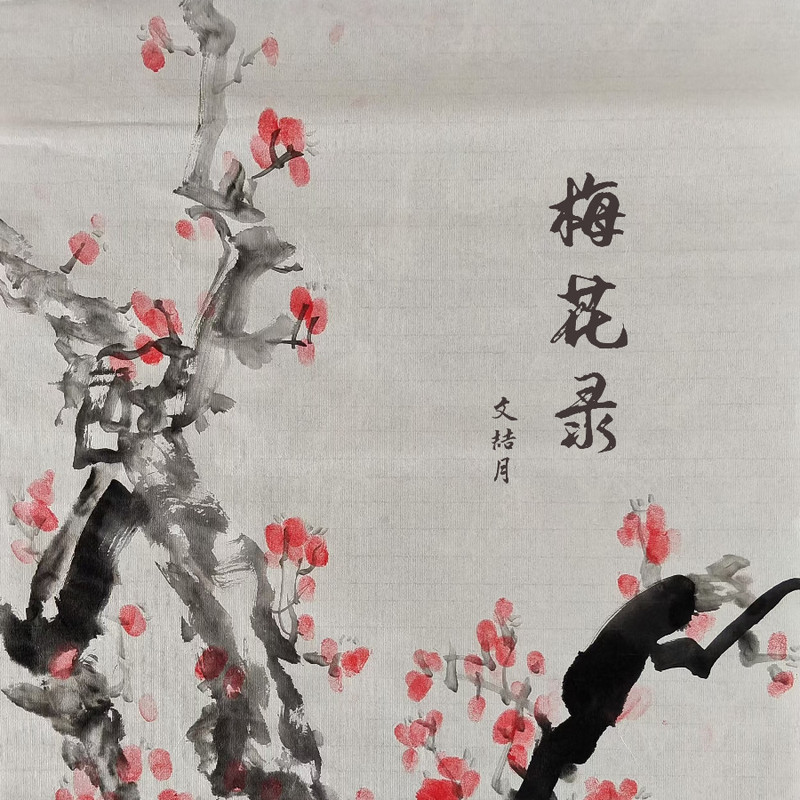 梅花录
文喆月